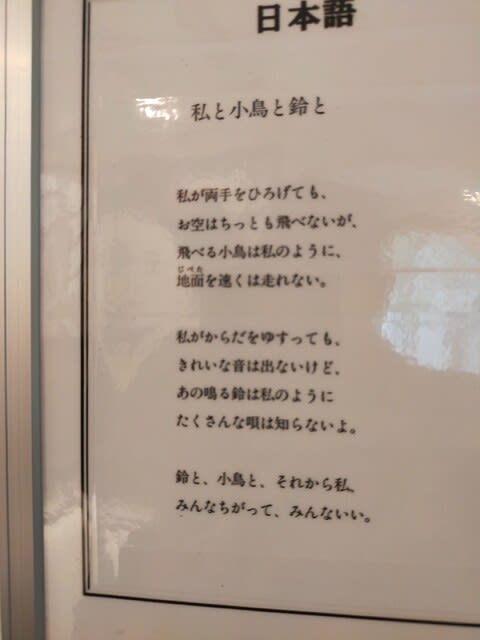 日本語
私と小鳥と鈴と
私が両手をひろげても、
お空はちっとも飛べないが、
飛べる小鳥は私のように、
じべた
地面を速くは走れない。
私がからだをゆすっても、
きれいな音は出ないけど、
あの鳴る鈴は私のように
たくさんな唄は知らないよ。
鈴と、小鳥と、それから私、
みんなちがって、みんないい。